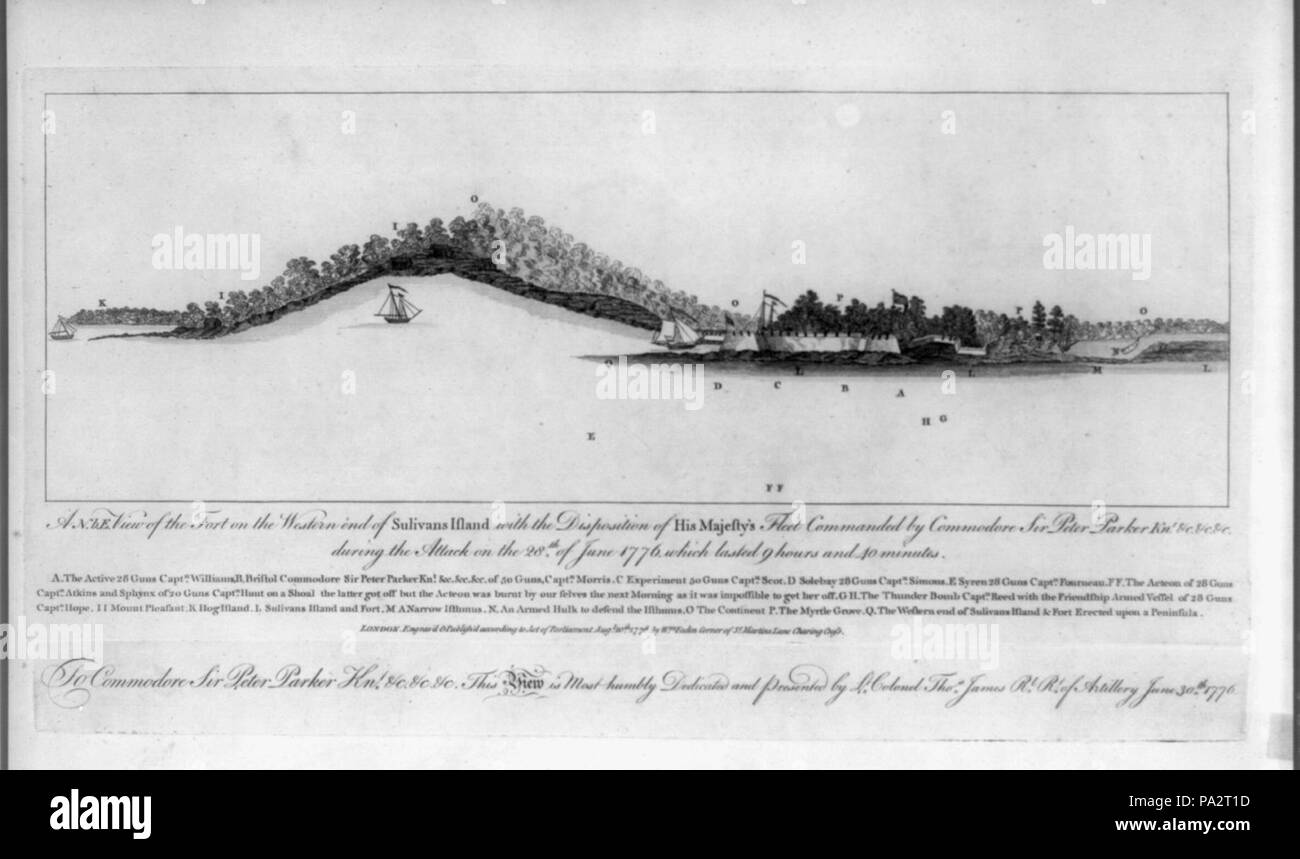 alamy
O
I
I
K
O
P
P
O
N
Q
L
L
M
L
D
C
B
A
H G
E
F F
A N.b.E. View of the Fort on the Western end of Sulivans Iſland with the Disposition of His Majeſty's Fleet Commanded by Commodore Sir Peter Parker Knt. &c. &c. &c.
during the Attack on the 28th. of June 1776, which lasted 9 hours and 40 minutes.
A. The Active 28 Guns Captn. Williams, B. Briſtol Commodore Sir Peter Parker Knt. &c. &c. &c. of 50 Guns, Captn. Morris. C Experiment 50 Guns Captn. Scot. D Solebay 28 Guns Captn. Simons. E Syren 28 Guns Captn. Fourneau. F F. The Acteon of 28 Guns
Captn. Atkins and Sphynx of 20 Guns Captn. Hunt on a Shoal the latter got off but the Acteon was burnt by our ſelves the next Morning as it was impoſſible to get her off. G H. The Thunder Bomb Captn. Reed with the Friendſhip Armed Veſſel of 28 Guns
Captn. Hope. I I Mount Pleaſant. K Hog Iſland. L Sulivans Iſland and Fort. M A Narrow Iſthmus. N. An Armed Hulk to defend the Iſthmus, O The Continent P. The Myrtle Grove. Q. The Weſtern end of Sulivans Iſland & Fort Erected upon a Peninſula.
LONDON. Engrav'd & Publiſh'd according to Act of Parliament Augt. 10th. 1776 by Wm. Faden Corner of St. Martins Lane Charing Croſs.
To Commodore Sir Peter Parker Knt. &c. &c. &c. This View is Most humbly Dedicated and preſented by Lt. Colonel Thos. James Rl. Rt. of Artillery June 30th. 1776
alamy
Image ID: PA2T1D
www.alamy.com